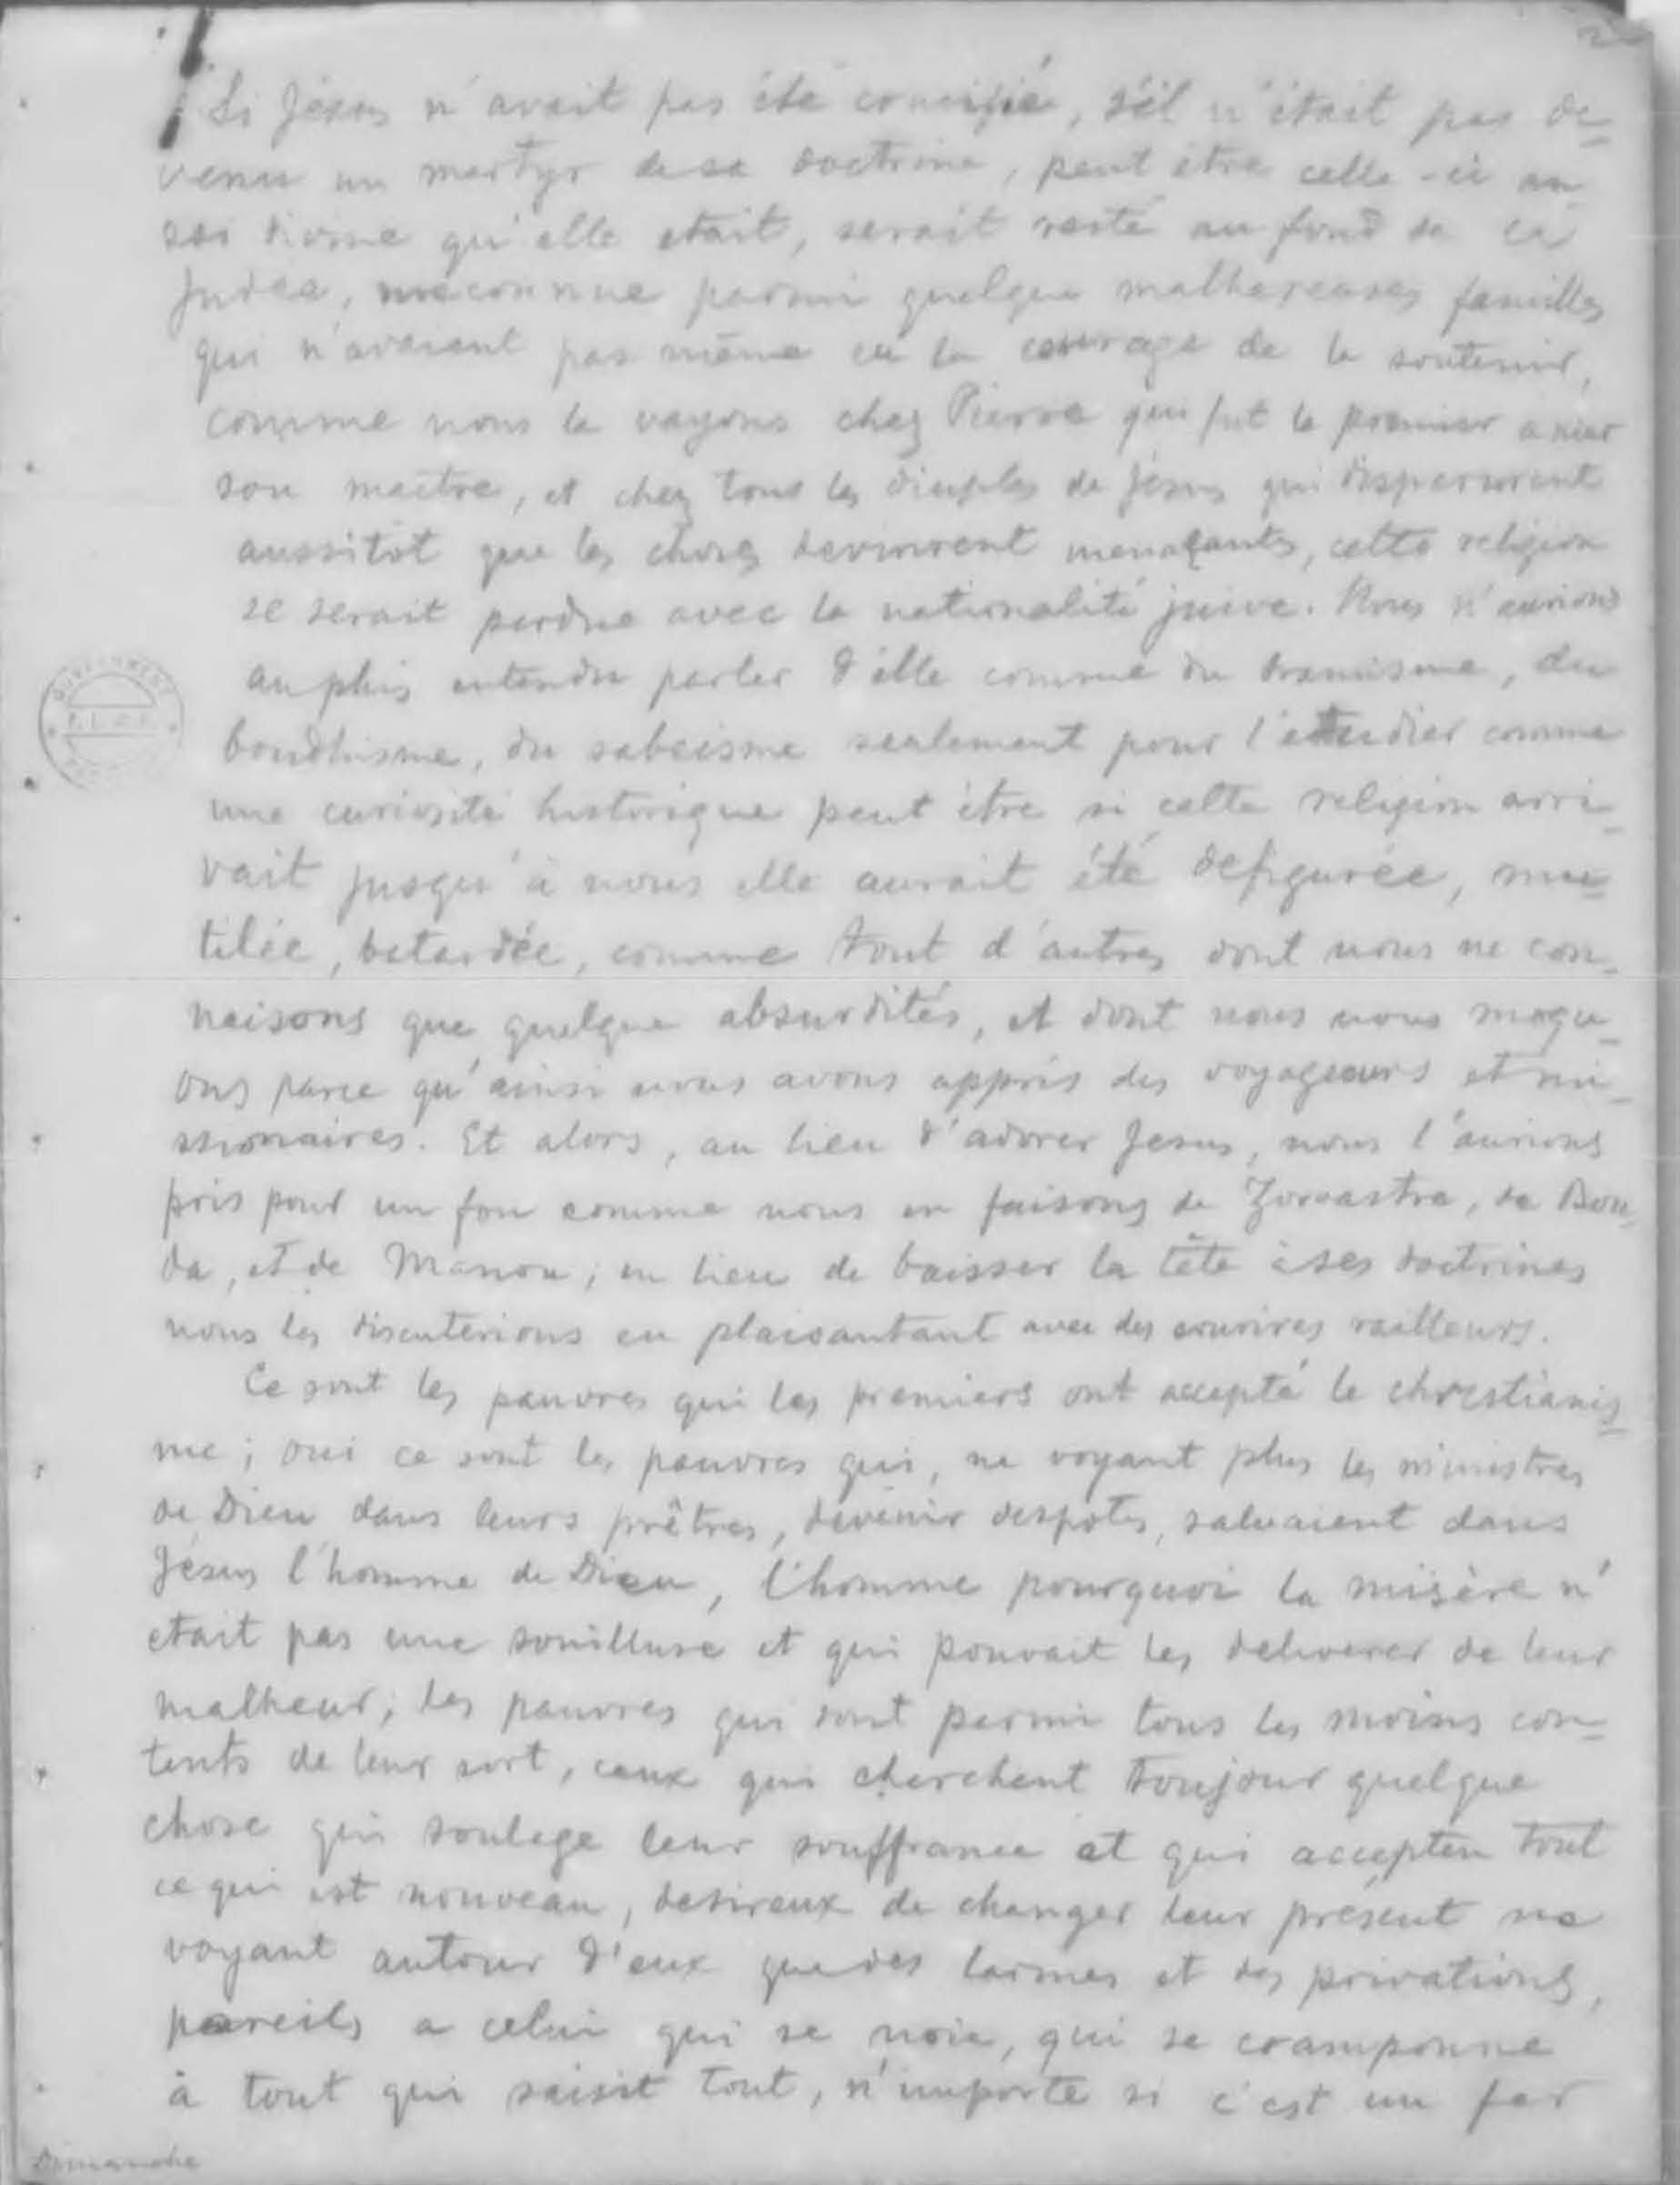 2
Si Jésus n'avait pas été crucifié, s'il n'était pas de-
venu un martyr de sa doctrine, peut être celle-ci au-
ssi divine qu'elle etait, serait resté au fond de la
Judée, méconnue parmi quelque malhereuses familles
qui n'avaient pas même eu le courage de la soutenir,
comme nous le voyons chez Pierre qui fut le premier a nier
son maitre, et chez tous les disciples de Jésus qui disperserent
aussitôt que les choses devinrent menaçants, cette religion
se serait perdue avec la nationalité juive. Nous n'aurions
au plus entendu parler d'elle comme du bramisme, du
boudhisme, du sabeisme seulement pour l'étudier comme
une curiosité historique peut être si cette religion arri-
vait jusqu'à nous elle aurait été defigurée, mu-
tilée, batardée, comme tant d'autres dont nous ne con-
naisons que quelque absurdités, et dont nous nous moqu-
ons parce qu'ainsi nous avons appris des voyageurs et mi-
ssionaires. Et alors, au lieu d'adorer Jesus, nous l'aurions
pris pour un fou comme nous en faisons de Zoroastre, de Bou-
da, et de Manou; en lieu de baisser la tête à ses doctrines
nous les discuterions en plaisantant avec des sourires railleurs.
Ce sont les pauvres qui les premiers ont accepté le chrestianis-
me; oui ce sont les pauvres qui, ne voyant plus les ministres
de Dieu dans leurs prêtres, devenir despotes, saluaient dans
Jésus l'homme de Dieu, l'homme pourquoi la misère n'
etait pas une souillure et qui pouvait les deliverer de leur
malheur; les pauvres qui sont parmi tous les moins con-
tents de leur sort, ceux qui cherchent toujour quelque
chose qui soulage leur souffrance et qui accepten tout
ce qui est nouveau, desireux de changer leur présent ne
voyant autour d'eux que des larmes et des privations,
pareils a celui qui se noie, qui se cramponne
à tout qui saisit tout, n'importe si c'est un fer
Dimanche